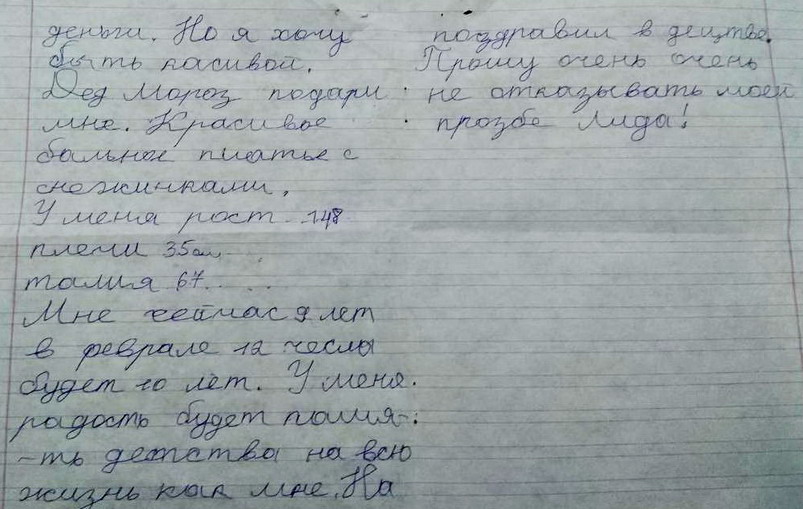 деньги. Но я хочу
быть касивой.
Дед Мороз подари
мне. Красивое
бальное платье с
снежинками.
У меня рост 148
плечи 35см
талия 67
Мне сейчас 9 лет
в феврале 12 числы
будет 10 лет. У меня
радость будет памя-
-ть детства на всю
жизнь как мне. На
поздравил в децтве.
Прошу очень очень
не отказывать моей
прозбе Лида!